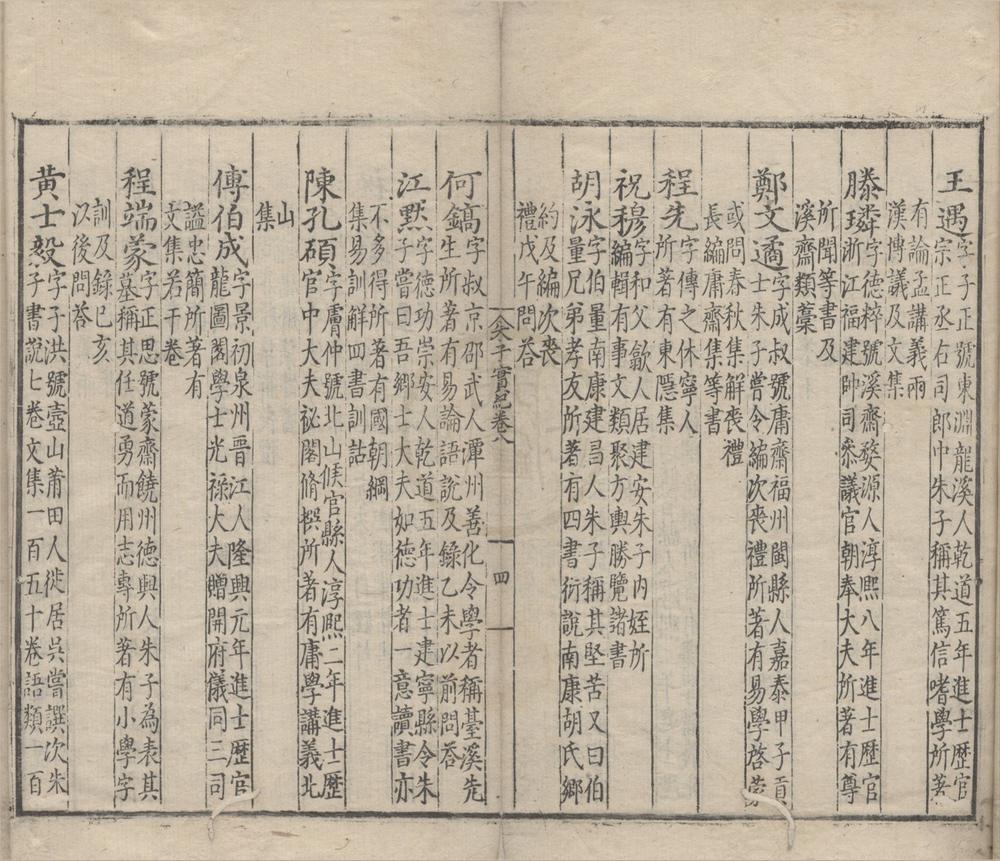 王遇字子正號東淵龍溪人乾道五年進士歷官
宗正丞右司郎中朱子稱其篤信嗜學所著
有論孟講義兩
漢博議及文集
滕璘字德粹號溪齋婺源人淳熙八年進士歷官
浙江福建帥司叅議官朝奉大夫所著有尊
所聞等書及
溪齋類藁
鄭文遹字成叔號庸齋福州閩縣人嘉泰甲子貢
士朱子嘗令編次喪禮所著有易學啓蒙
或問春秋集解喪禮
長編庸齋集等書
程先字傳之休寧人
所著有東隱集
祝穆字和父歙人居建安朱子内姪所
編輯有事文類聚方輿勝覽諸書
胡泳字伯量南康建昌人朱子稱其堅苦又曰伯
量兄弟孝友所著有四書衍說南康胡氏鄉
約及編次喪
禮戊午問荅
朱子實紀卷八
四
何鎬字叔京邵武人潭州善化令學者稱臺溪先
生所著有易論語說及錄乙未以前問荅
江黙字德功崇安人乾道五年進士建寧縣令朱
子嘗曰吾鄉士大夫如德功者一意讀書亦
不多得所著有國朝綱
集易訓解四書訓詁
陳孔碩字膚仲號北山候官縣人淳熙二年進士歷
官中大夫祕閣脩撰所著有庸學講義北
山
集
傅伯成字景初泉州晉江人隆興元年進士歷官
龍圖閣學士光祿大夫贈開府儀同三司
謚忠簡所著有
文集若干卷
程端蒙字正思號蒙齋饒州德興人朱子為表其
墓稱其任道勇而用志專所著有小學字
訓及錄己亥
以後問荅
黃士毅字子洪號壺山莆田人徙居吳嘗譔次朱
子書說七卷文集一百五十卷語類一百